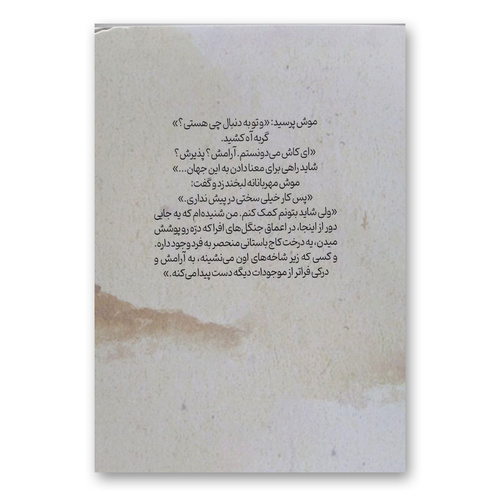 موش پرسید: «و تو به دنبال چی هستی؟»
گربه آه کشید.
«ای کاش می‌دونستم. آرامش؟ پذیرش؟
شاید راهی برای معنا دادن به این جهان...»
موش مهربانانه لبخند زد و گفت:
«پس کار خیلی سختی در پیش نداری.»
«ولی شاید بتونم کمک کنم. من شنیده‌ام که یه جایی
دور از اینجا، در اعماق جنگل‌های افرا که درّه رو پوشش
میدن، یه درخت کاج باستانی منحصر به فرد وجود داره.
و کسی که زیر شاخه‌های اون می‌نشینه، به آرامش و
درکی فراتر از موجودات دیگه دست پیدا می‌کنه.»